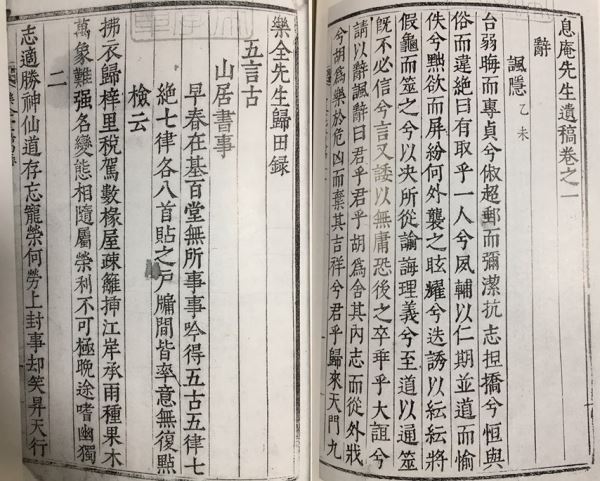 息庵先生遺稿卷之一
辭
諷隱 乙未
台弱晦而專貞兮俶超郵而彌潔抗志担撟兮恒與
俗而違絶曰有取乎一人兮夙輔以仁期並道而愉
佚兮黜欲而屏紛何外襲之眩耀兮迭誘以紜紜將
假龜而筮之兮以決所從諭誨理義兮至道以通筮
旣不必信兮言又諉以無庸恐後之卒乖乎大誼兮
請以辭諷辭曰君乎君乎胡爲舍其內志而從外戕
兮胡爲樂於危凶而棄其吉祥兮君乎歸來天門九
樂全先生歸田録
五言古
山居書事
早春在基百堂無所事事吟得五古五律七
絶七律各八首貼之戶牖間皆率意無復點
檢云
拂衣歸梓里税駕數椽屋疎籬揷江岸承雨種果木
萬象難强名變態相隨屬榮利不可極晚途嗜幽獨
二
志適勝神仙道存忘寵榮何勞上封事却笑昇天行